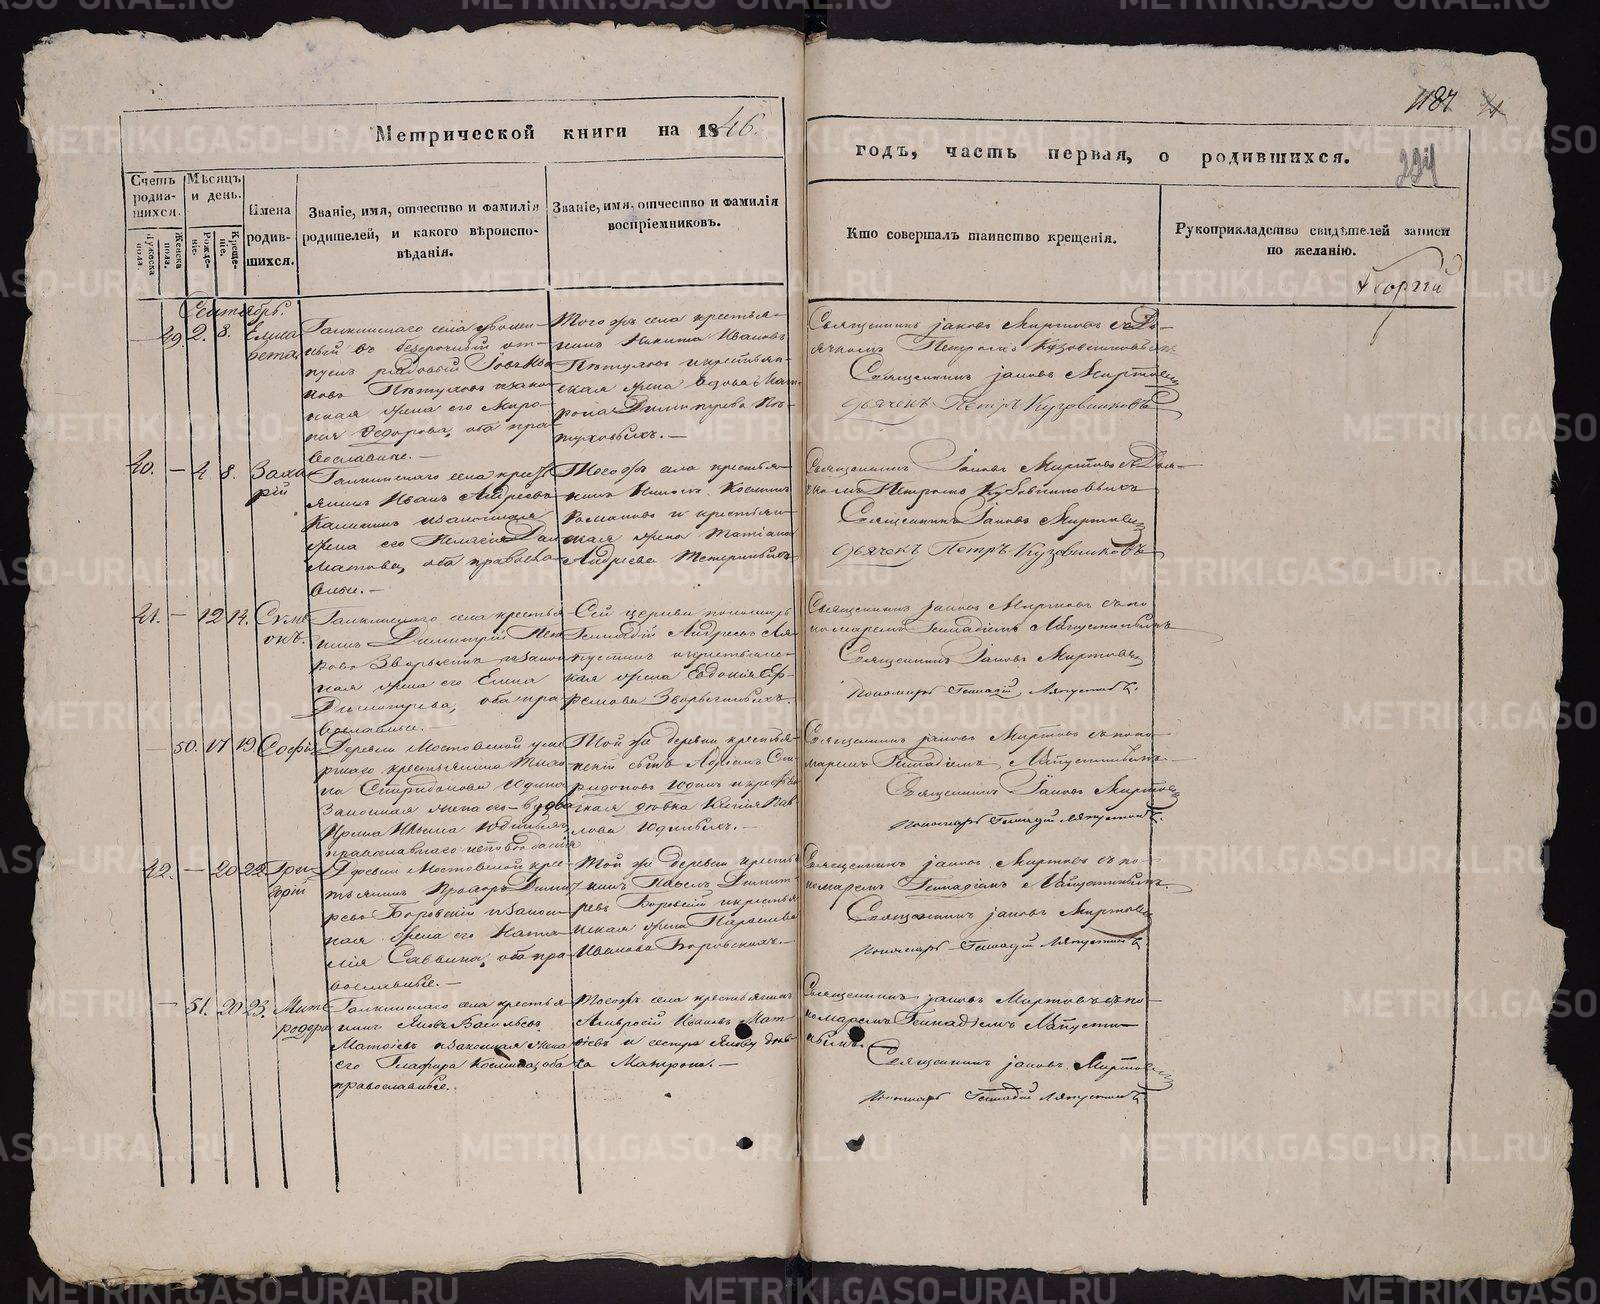 1187
Метрической книги на 1846.
годъ, часть первая, о родившихся.
224
Счетъ родив-шихся.
Мужеска пола.
Женска пола.
Мѣсяцъ и день.
Рожде-ніе.
Креще-ніе.
Имена родив-шихся.
Званіе, имя, отчество и фамилія родителей, и какого вѣроиспо-вѣданія.
Званіе, имя, отчество и фамилія воспріемниковъ.
Кто совершалъ таинство крещенія.
Рукоприкладство свидѣтелей записи по желанію.
Сентябрь.
49. 2. 8. Елиса-
бета
Галкинскаго села уволен-
ный въ безсрочный от-
пускъ рядовый
Пѣтуховъ и закон-
ная жена его Миро-
нія Ѳедорова, оба пра-
вославные. —
Того жъ села крестья-
нинъ Никита Ивановъ
Пѣтуховъ и крестьян-
ская жена вдова Мат-
рона Димитріева Пѣ-
туховыхъ. —
Священникъ Іаковъ Миртовъ съ дь-
ячкомъ Петромъ Кузовниковымъ
Священникъ Іаковъ Миртовъ
дьячекъ Петръ Кузовниковъ
40. — 4 8. Заха-
рій
Галкинскаго села кресть-
янинъ Иванъ Андреевъ
и законная
жена его Пелагія Дал-
матова, оба правосла-
вные. —
Того жъ села крестья-
нинъ Косминъ
Романовъ и крестьян-
ская жена Татіана
Андреева
Священникъ Іаковъ Миртовъ съ дья-
чкомъ Петромъ Кузовниковымъ
Священникъ Іаковъ Миртовъ
дьячекъ Петръ Кузовниковъ
41. — 12 14. Сѵме-
онъ.
Галкинскаго села крестья-
нинъ Димитрій Пет-
ровъ Зворыгинъ и закон-
ная жена его Елена
Димитріева, оба пра-
вославные.
Сей церкви пономарь
Геннадій Андреевъ Ля-
пустинъ и крестьянс-
кая жена Евдокія Еф-
ремова Зворыгиныхъ.
Священникъ Іаковъ Миртовъ съ по-
номаремъ Геннадіемъ Ляпустинымъ
Священникъ Іаковъ Миртовъ
Пономарь Геннадій Ляпустинъ.
50. 17 19. Софья
Деревни Мостовской уме-
ршаго крестьянина Тихо-
на Спиридонова Юдина
законная жена его — вдова
Ирина Ильина Юдиныхъ,
православнаго исповѣданія
Той же деревни крестья-
нскій сынъ Адріанъ Спи-
ридоновъ Юдинъ и крестья-
нская дѣвка Ксенія Пав-
лова Юдиныхъ. —
Священникъ Іаковъ Миртовъ съ поно-
маремъ Геннадіемъ Ляпустинымъ. —
Священникъ Іаковъ Миртовъ
Пономарь Геннадій Ляпустинъ.
42. — 20 22. Григо-
рій
Деревни Мостовской крес-
тьянинъ Прохоръ Димит-
ріевъ Боровскій и закон-
ная жена его Ната-
лія Саввина, оба пра-
вославные. —
Той же деревни крестья-
нинъ Павелъ Димит-
ріевъ Боровскій и крестья-
нская жена Параскева
Иванова Боровскихъ. —
Священникъ Іаковъ Миртовъ съ по-
номаремъ Геннадіемъ Ляпустинымъ.
Священникъ Іаковъ Миртовъ
Пономарь Геннадій Ляпустинъ.
— 51. 20 23. Мит-
родора
Галкинскаго села крестья-
нинъ Яковъ Васильевъ
Матвіевъ и законная жена
его Глафира Космина, оба
православные.
Тогожъ села крестьянинъ
Амвросій Ивановъ Мат-
віевъ и сестра Якову дѣв-
ка Матрона. —
Священникъ Іаковъ Миртовъ съ по-
номаремъ Геннадіемъ Ляпусти-
нымъ. —
Священникъ Іаковъ Миртовъ
Пономарь Геннадій Ляпустинъ.
METRIKI.GASO-URAL.RU